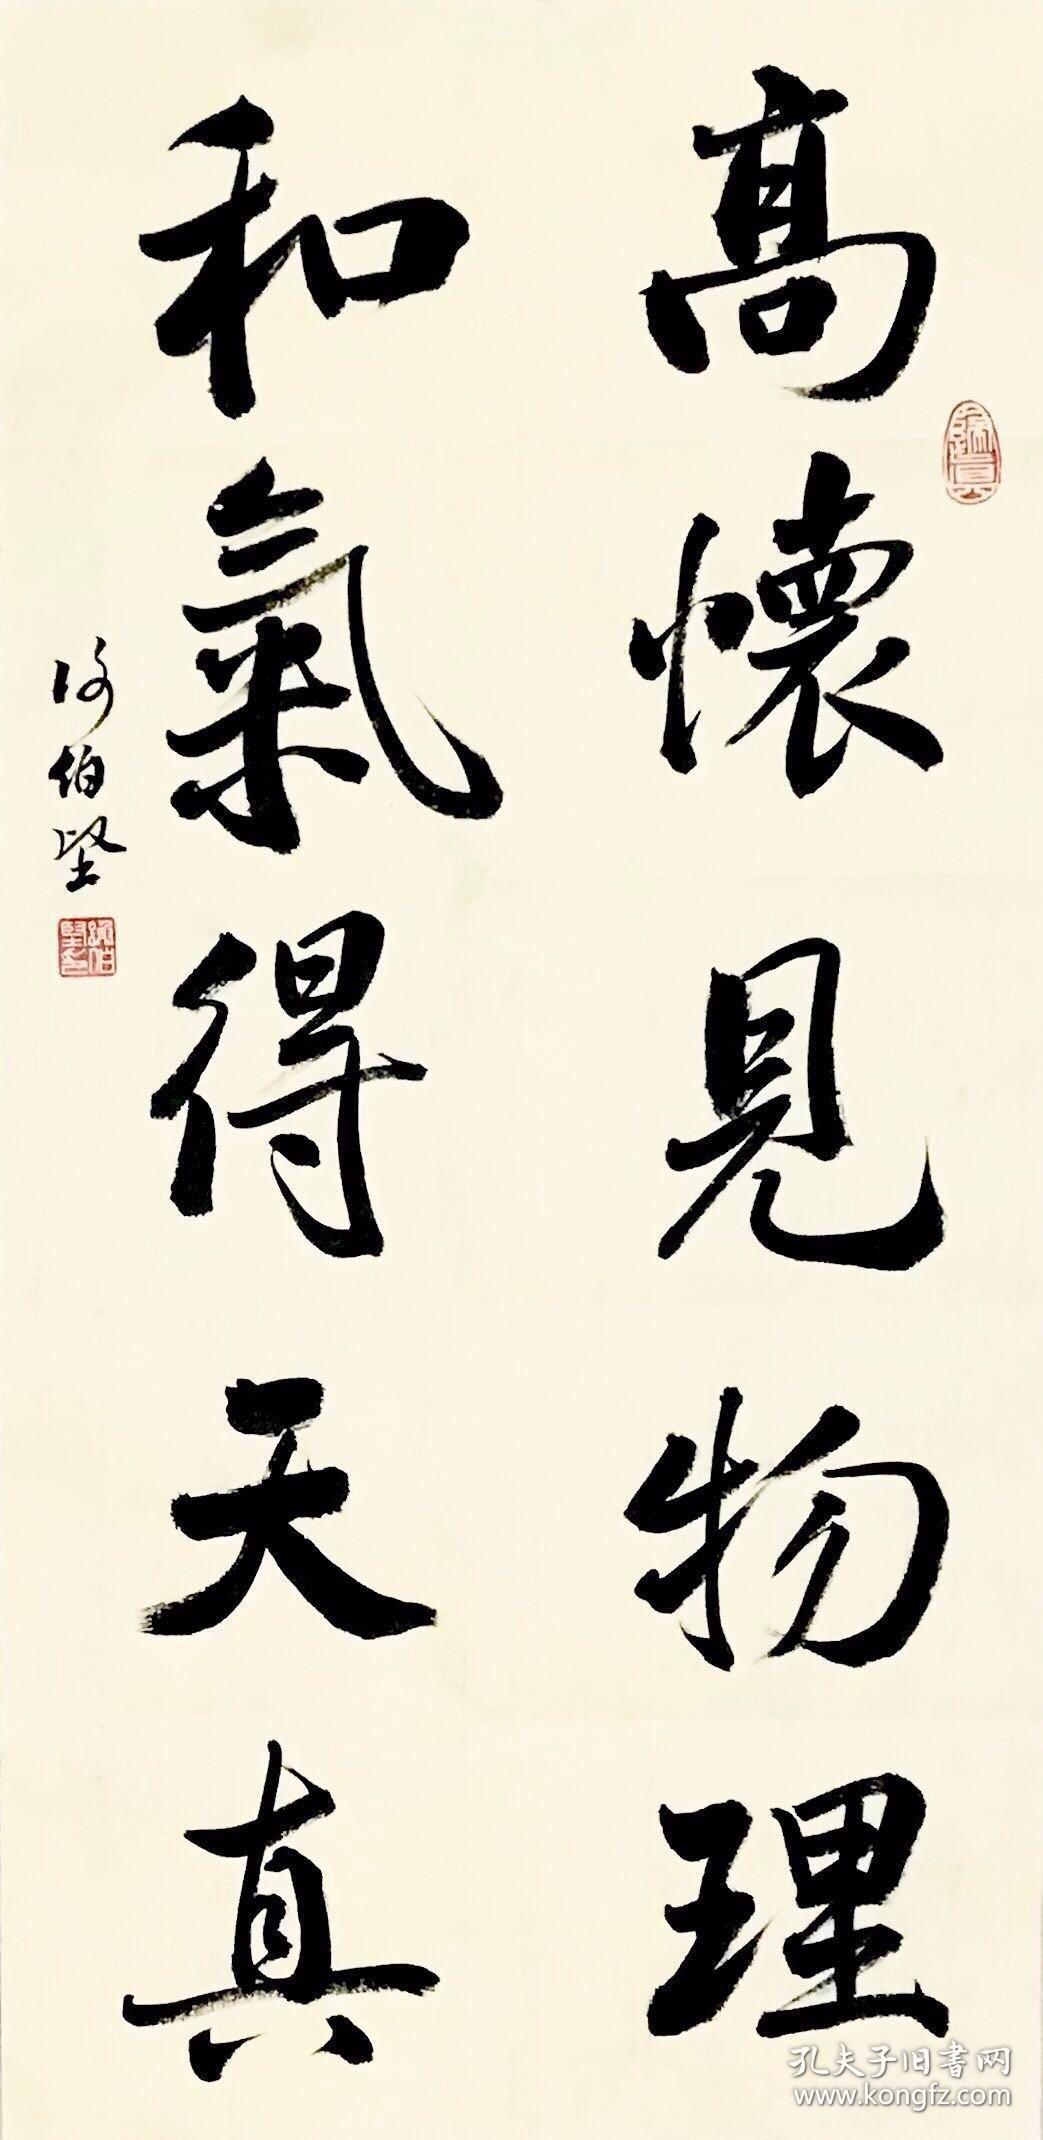 高懷見物理
和氣得天真
伯堅
孔夫子旧書网
www.kongfz.com